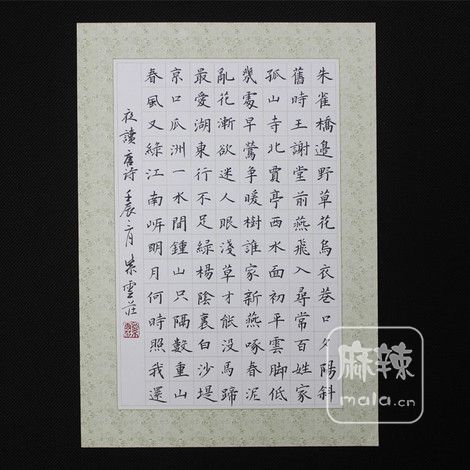 朱雀橋邊野草花烏衣巷口夕陽斜
舊時王謝堂前燕飛入尋常百姓家
孤山寺北賈亭西水面初平雲腳低
幾處早鶯爭暖樹誰家新燕啄春泥
亂花漸欲迷人眼淺草才能沒馬蹄
最愛湖東行不足綠楊陰裏白沙堤
京口瓜洲一水間鍾山只隔數重山
春風又綠江南岸明月何時照我還
夜讀唐詩 壬辰 月 紫雲莊
麻辣
mala.cn